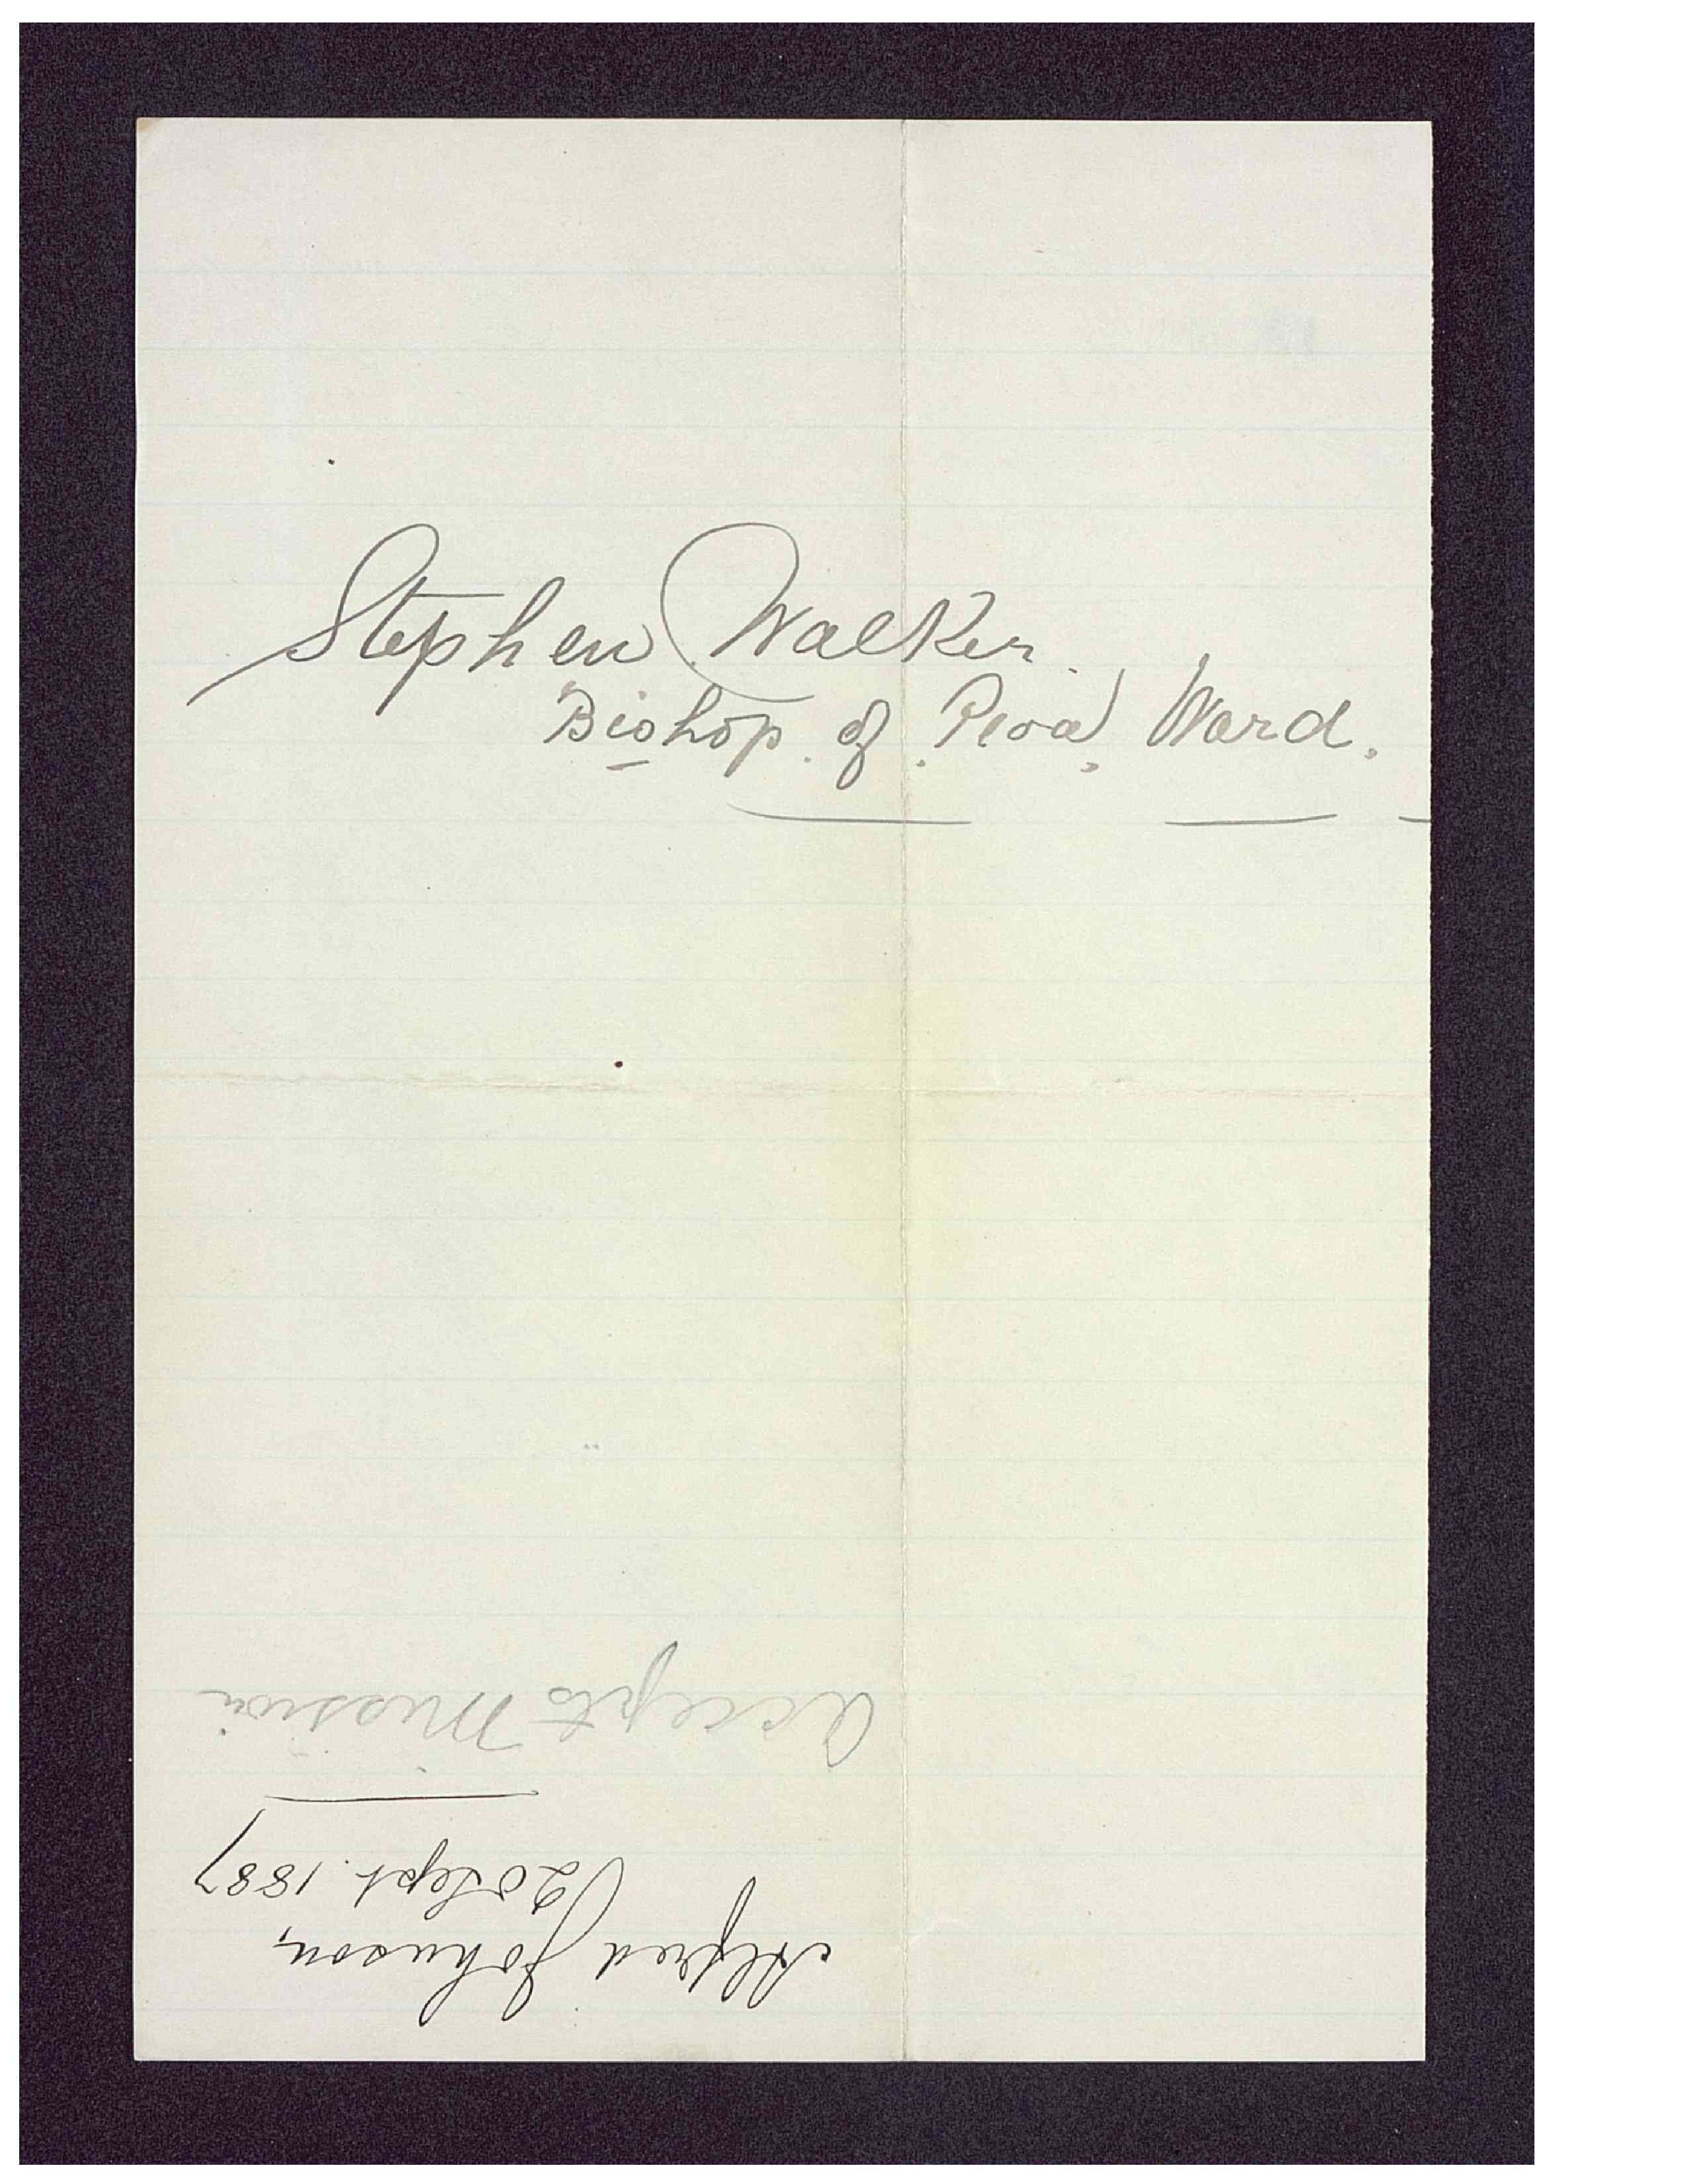 Stephen Walker.
Bishop. of. Peoa, Ward.
Alfred Johnson,
20 Sept. 1887
Accepts Mission